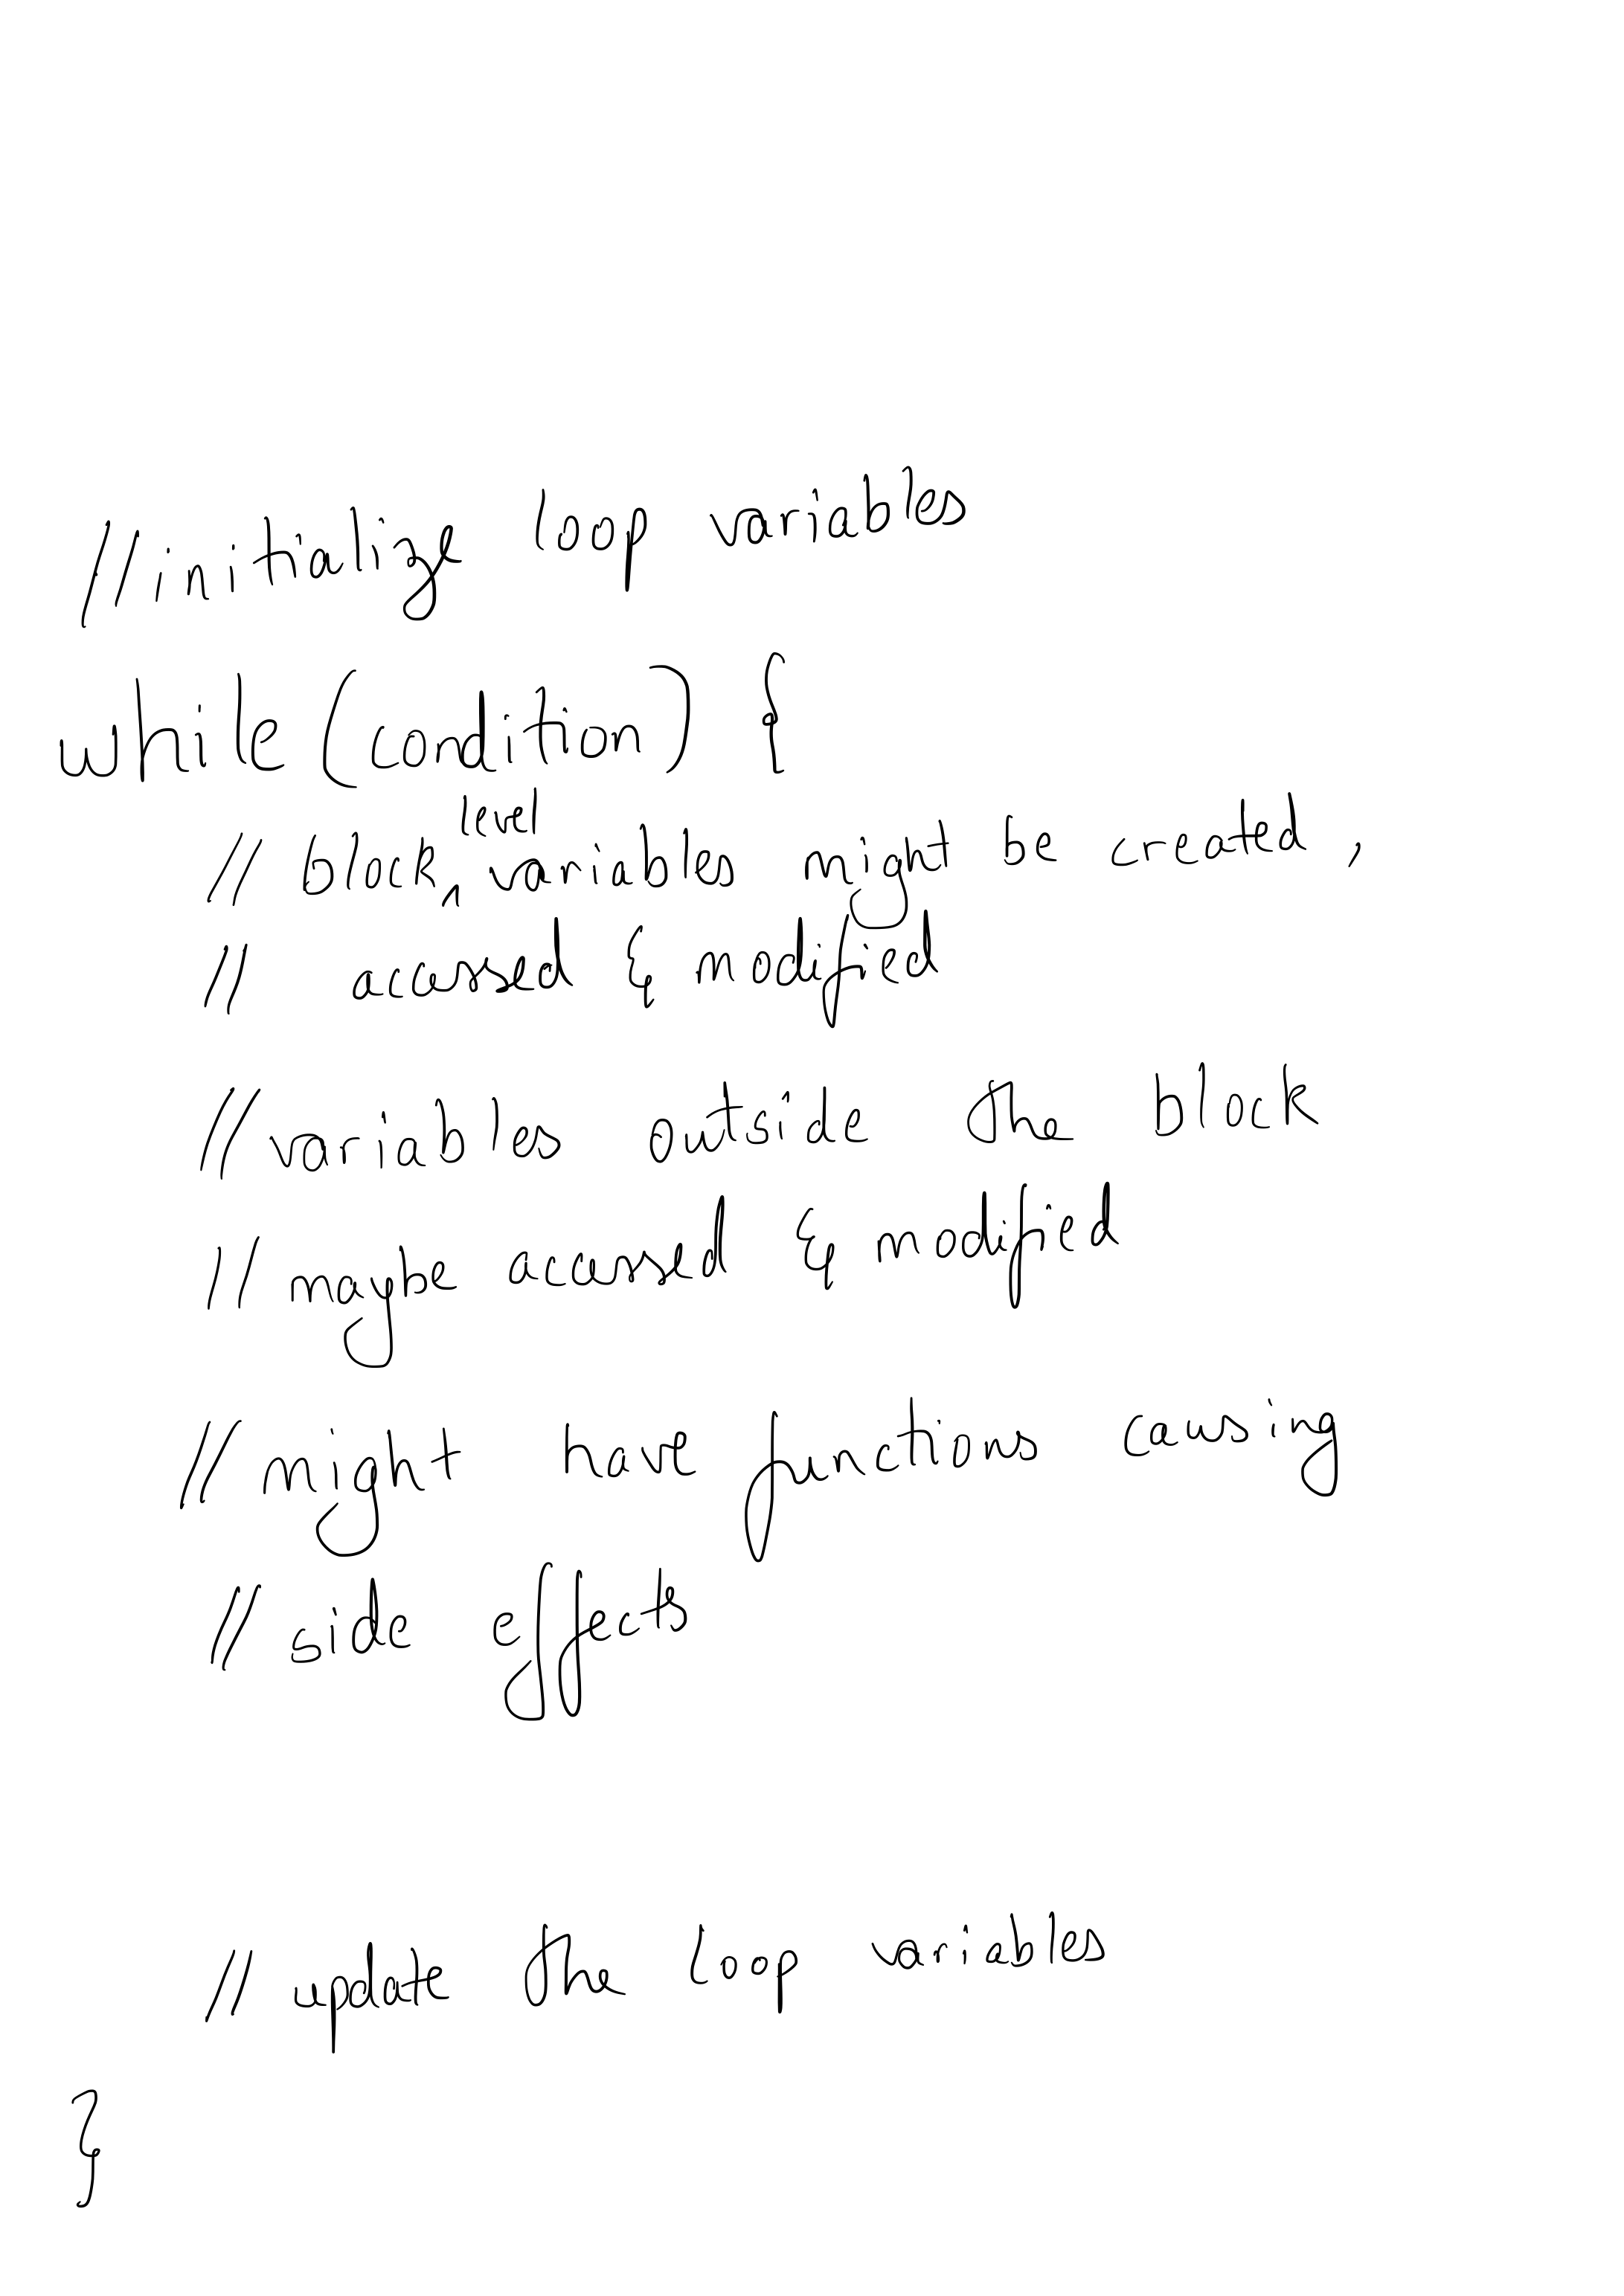 //initialize loop variables
while (condition) {
// block level variables might be created,
// accessed & modified
// variables outside the block
// maybe accessed & modified
// might have functions causing
// side effects
// update the loop variables
}